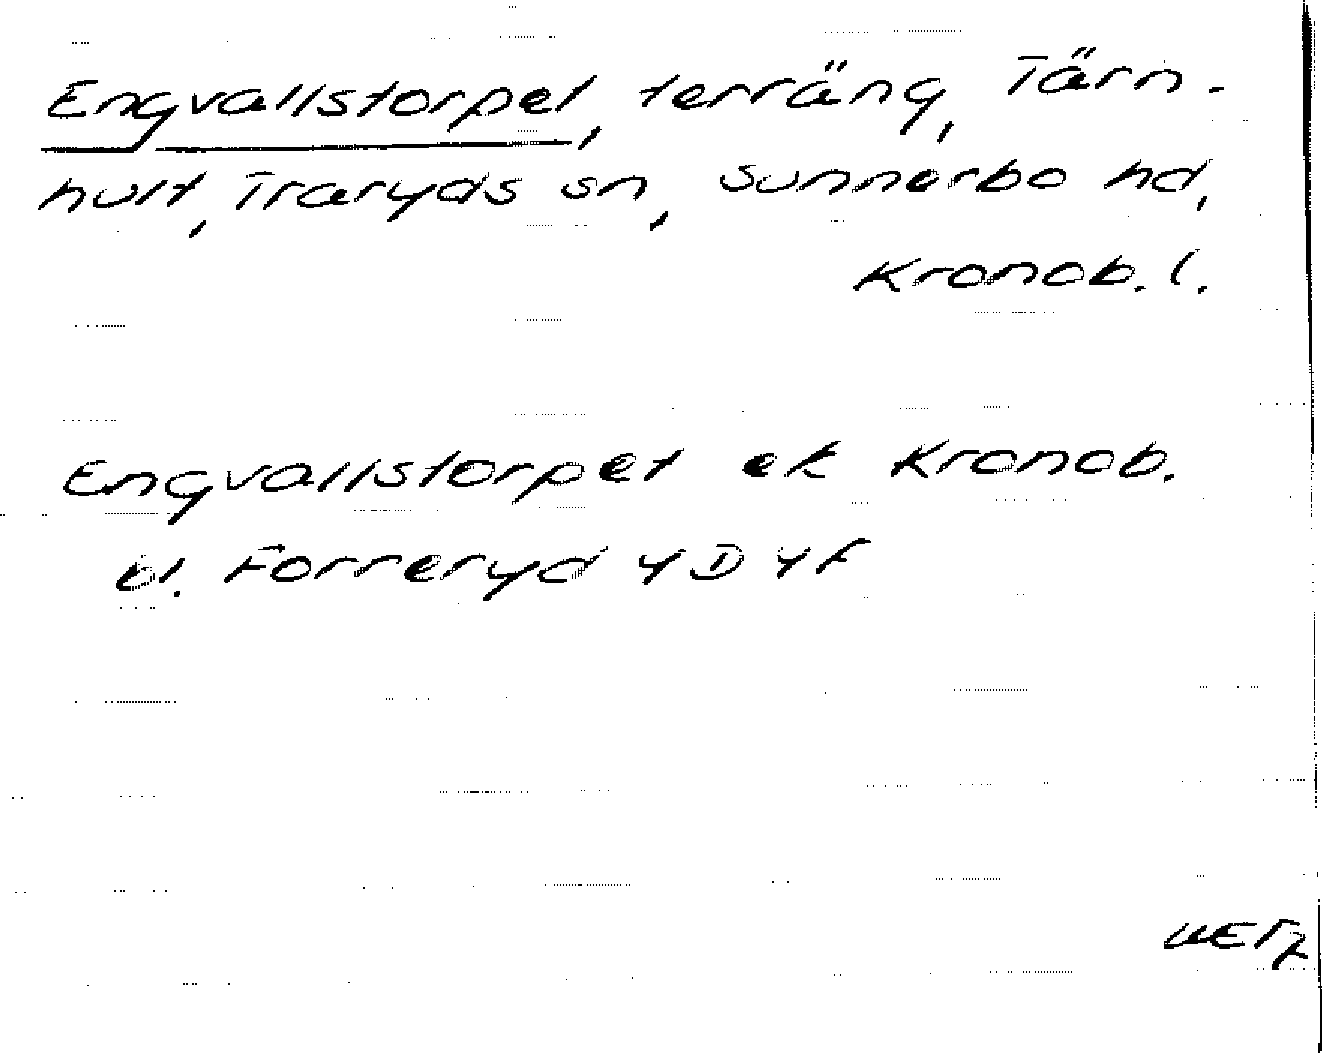 Engvallstorpet, terräng, Tärn-
hult, Traryds sn, Sunnerbo hd,
Kronob. l.
Engvallstorpet ek Kronob.
bl. Forreryd 4D 4f